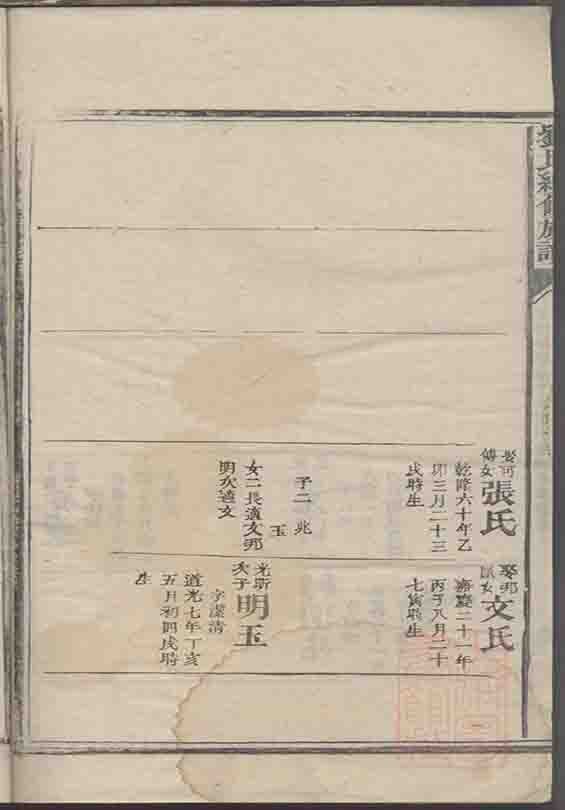 劉氏續修族譜
娶可
傳女
張氏
乾隆六十年乙
卯三月二十三
戌時生
子二兆
玉
女二長適文邦
明次適文
娶邦
女
文氏
嘉慶二十一年
丙子八月二十
七寅時生
光斯
次子
明玉
字潔清
道光七年丁亥
五月初四戌時
生